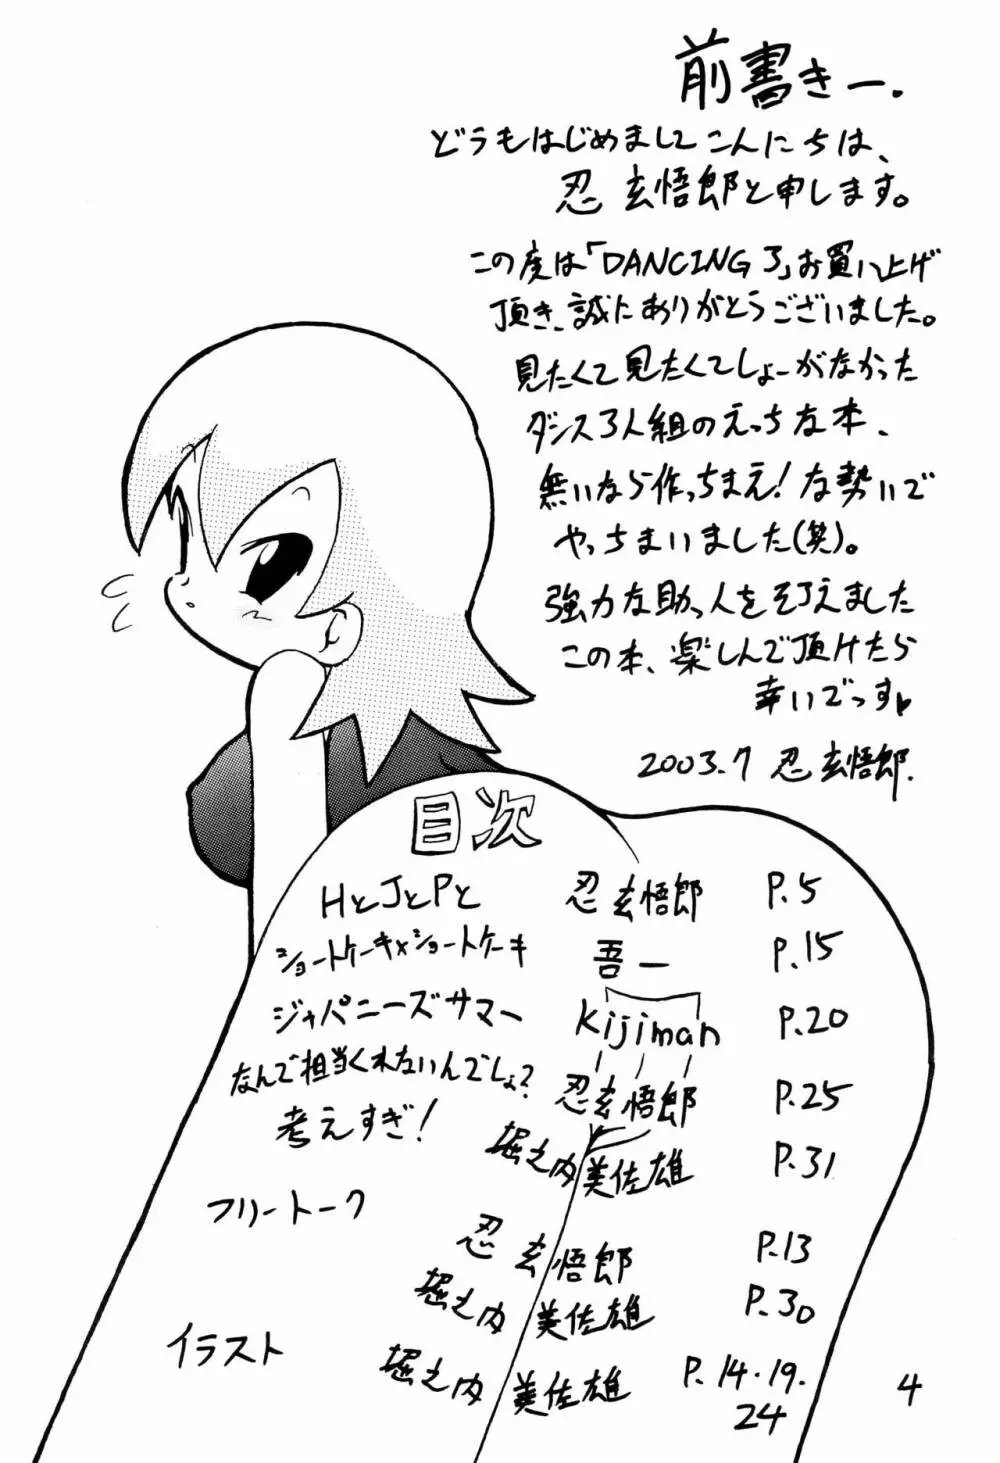 前書きー.
どうもはじめましてこんにちは、
忍 玄悟郎と申します。
この度は「DANCING 3」お買い上げ
頂き、誠にありがとうございました。
見たくて見たくてしょーがなかった
ダンス3人組のえっちな本、
無いなら作っちまえ!な勢いで
やっちまいました(笑)。
強力な助っ人をそろえました
この本、楽しんで頂けたら
幸いでっす♥
2003.7 忍 玄悟郎.
目次
HとJとPと 忍 玄悟郎 P.5
ショートケーキ×ショートケーキ 吾一 P.15
ジャパニーズサマー kijiman P.20
なんで担当くれないんでしょ? 忍 玄悟郎 P.25
考えすぎ! 堀之内 美佐雄 P.31
フリートーク 忍 玄悟郎 P.13
堀之内 美佐雄 P.30
イラスト 堀之内 美佐雄 P.14.19.
24
4